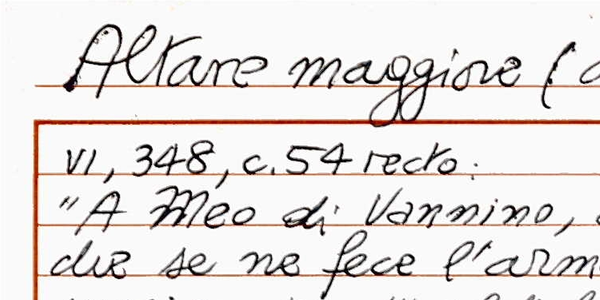 Altare maggiore (
VI, 348, c. 54 recto:
"A Meo di Vannino,
che se ne fece l'arm